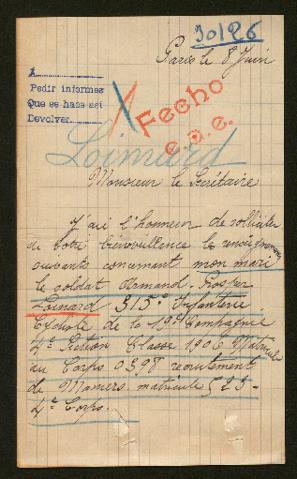 30126
Paris le 8 Juin
A
Pedir informes
Que se haga así
Devolver
Fecho
e.a.e.
Loinard
Monsieur le Secrétaire
J'ai l'honneur de solliciter
de Votre bienveillance les renseignements
suivants concernant mon mari
le soldat Armand Prosper
Loinard 315e Infanterie
Cycliste de la 19e Compagnie
4e Section Classe 1906 Matricule
au Corps 0398 recrutement
de Mamers matricule 525 -
4e Corps.